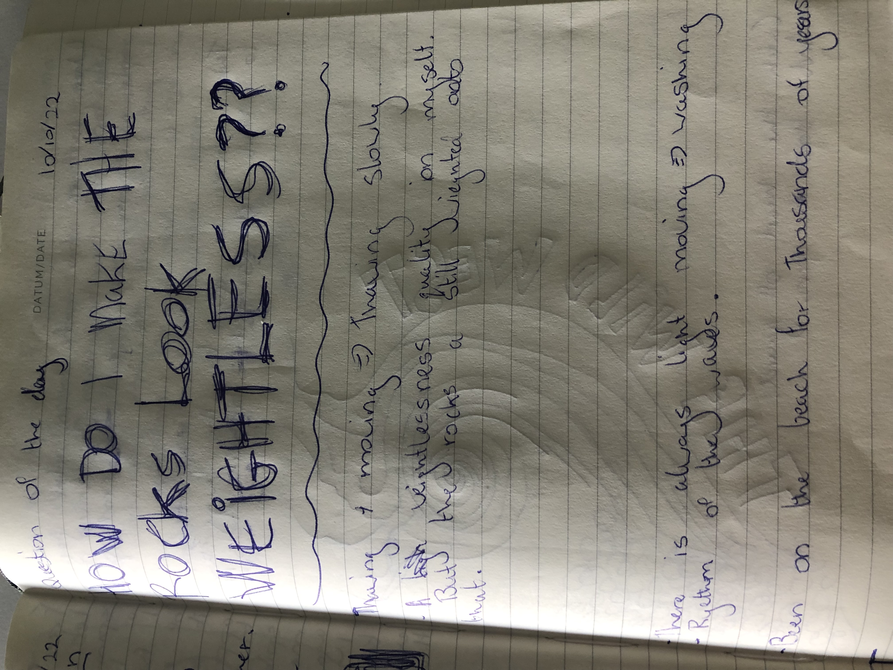 question of the day
DATUM/DATE 10/10/22
HOW DO I MAKE THE
ROCKS LOOK
WEIGHTLESS??
Thiving & moving => Thaiving slowly
• A weintlessness quality on myself.
But the rocks a still vieghted onto
that.
• There is always light moving => washing
• Rythm of they waves.
• Been on the beach for Thousands of years